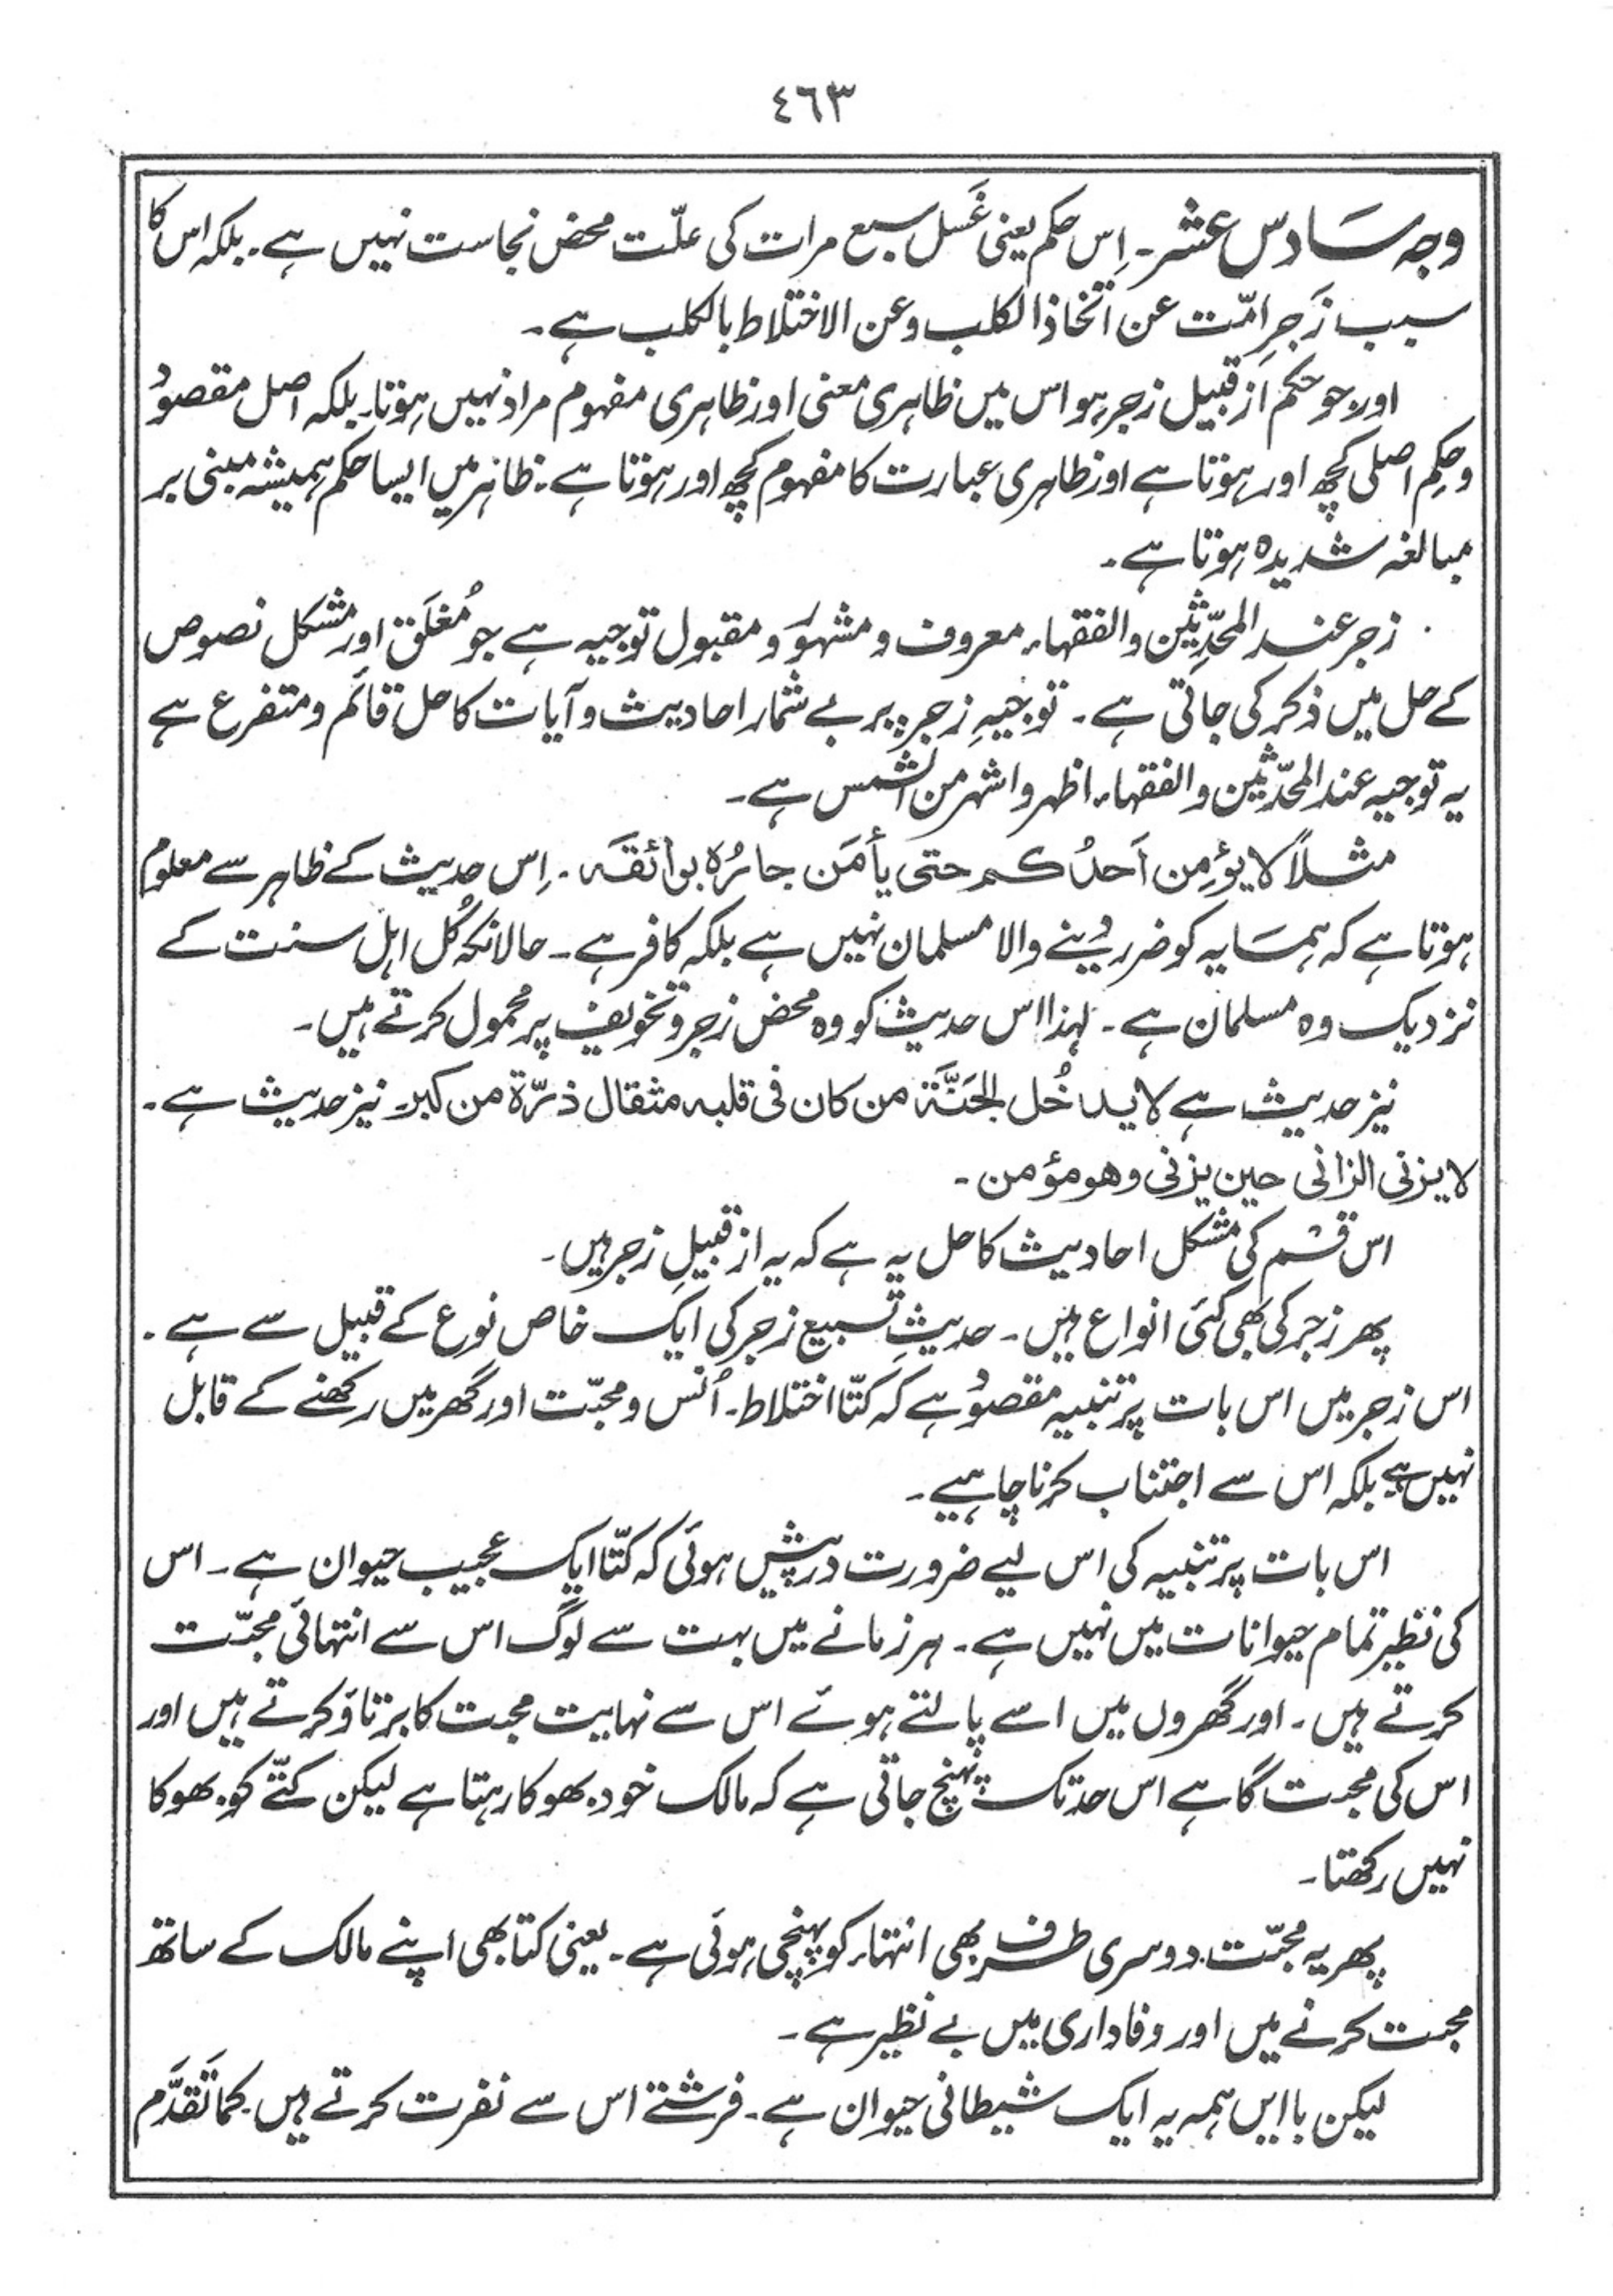 ٤٦٣
وجہ سَادس عشر۔ اِس حکم یعنی غَسل سبع مرات کی علّت محض نجاست نہیں ہے۔ بلکہ اس کا
سبب زَجرِ امّت عن اتّخاذ الکلب وعن الاختلاط بالکلب ہے۔
اور جو حکم از قبیل زجر ہو اس میں ظاہری معنی اور ظاہری مفہوم مراد نہیں ہوتا۔ بلکہ اصل مقصوُد
وحکمِ اصلی کچھ اور ہوتا ہے اور ظاہری عبارت کا مفہوم کچھ اور ہوتا ہے۔ ظاہر میں ایسا حکم ہمیشہ مبنی بر
مبالغہ شدیدہ ہوتا ہے۔
زجر عند المحدِّثین والفقہاء معروف و مشہوَر و مقبول توجیہ ہے جو مُغلَق اور مشکل نصوص
کے حل میں ذکر کی جاتی ہے۔ توجیہِ زجر پر بے شمار احادیث و آیات کا حل قائم و متفرع ہے
یہ توجیہ عند المحدّثین والفقہاء اظہر واشہر من الشمس ہے۔
مثلاً لا یؤمِن اَحدُکم حتی یأمَن جارُہ بوائقَہ۔ اِس حدیث کے ظاہر سے معلوم
ہوتا ہے کہ ہمسَایہ کو ضرر دینے والا مسلمان نہیں ہے بلکہ کافر ہے۔ حالانکہ کُل اہل سنت کے
نزدیک وہ مسلمان ہے۔ لہذا اس حدیث کو وہ محض زجر و تخویف پر محمول کرتے ہیں۔
نیز حدیث ہے لا یدخُل الجَنَّۃَ من کان فی قلبہ مثقال ذرّۃ من کبر۔ نیز حدیث ہے۔
لا یزنی الزانی حین یزنی وھو مؤمن۔
اس قسم کی مشکل احادیث کا حل یہ ہے کہ یہ از قبیلِ زجر ہیں۔
پھر زجر کی بھی کئی انواع ہیں۔ حدیثِ تسبیع زجر کی ایک خاص نوع کے قبیل سے ہے۔
اس زجر میں اس بات پر تنبیہ مقصوُد ہے کہ کتّا اختلاط۔ اُنس و محبّت اور گھر میں رکھنے کے قابل
نہیں ہے بلکہ اس سے اجتناب کرنا چاہیے۔
اس بات پر تنبیہ کی اس لیے ضرورت درپیش ہوئی کہ کتّا ایک عجیب حیوان ہے۔ اس
کی نظیر تمام حیوانات میں نہیں ہے۔ ہر زمانے میں بہت سے لوگ اس سے انتہائی محبّت
کرتے ہیں۔ اور گھروں میں اسے پالتے ہوئے اس سے نہایت محبت کا برتاؤ کرتے ہیں اور
اس کی محبت گاہے اس حد تک پہنچ جاتی ہے کہ مالک خود بھوکا رہتا ہے لیکن کتّے کو بھوکا
نہیں رکھتا۔
پھر یہ محبّت دوسری طرف بھی انتہاء کو پہنچی ہوئی ہے۔ یعنی کتا بھی اپنے مالک کے ساتھ
محبت کرنے میں اور وفاداری میں بے نظیر ہے۔
لیکن بایں ہمہ یہ ایک شیطانی حیوان ہے۔ فرشتے اس سے نفرت کرتے ہیں۔ کما تَقَدَّم